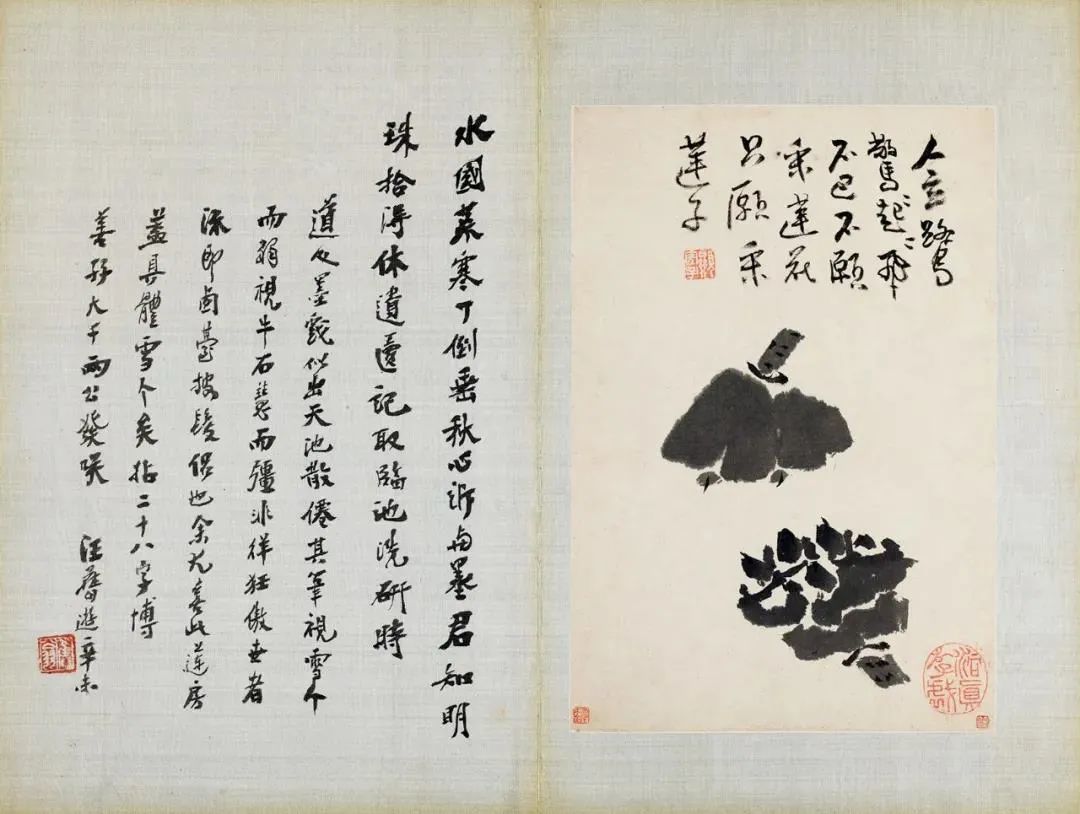 人立鷺
驚起〻飛
不已不願
采蓮花
只願采
蓮子
水國葉寒丁倒垂秋心訴与墨君知明
珠拾得休遺記取臨池洗研時
道人墨戲似出天池散僊其筆視雪个
而弱視牛石慧而彊非徉狂傲世者
流即鹵莽披髮侶也余尤喜此蓮房
蓋具體雪个矣拈二十八字博
善孖大千兩公發咲 汪舊遊辛未